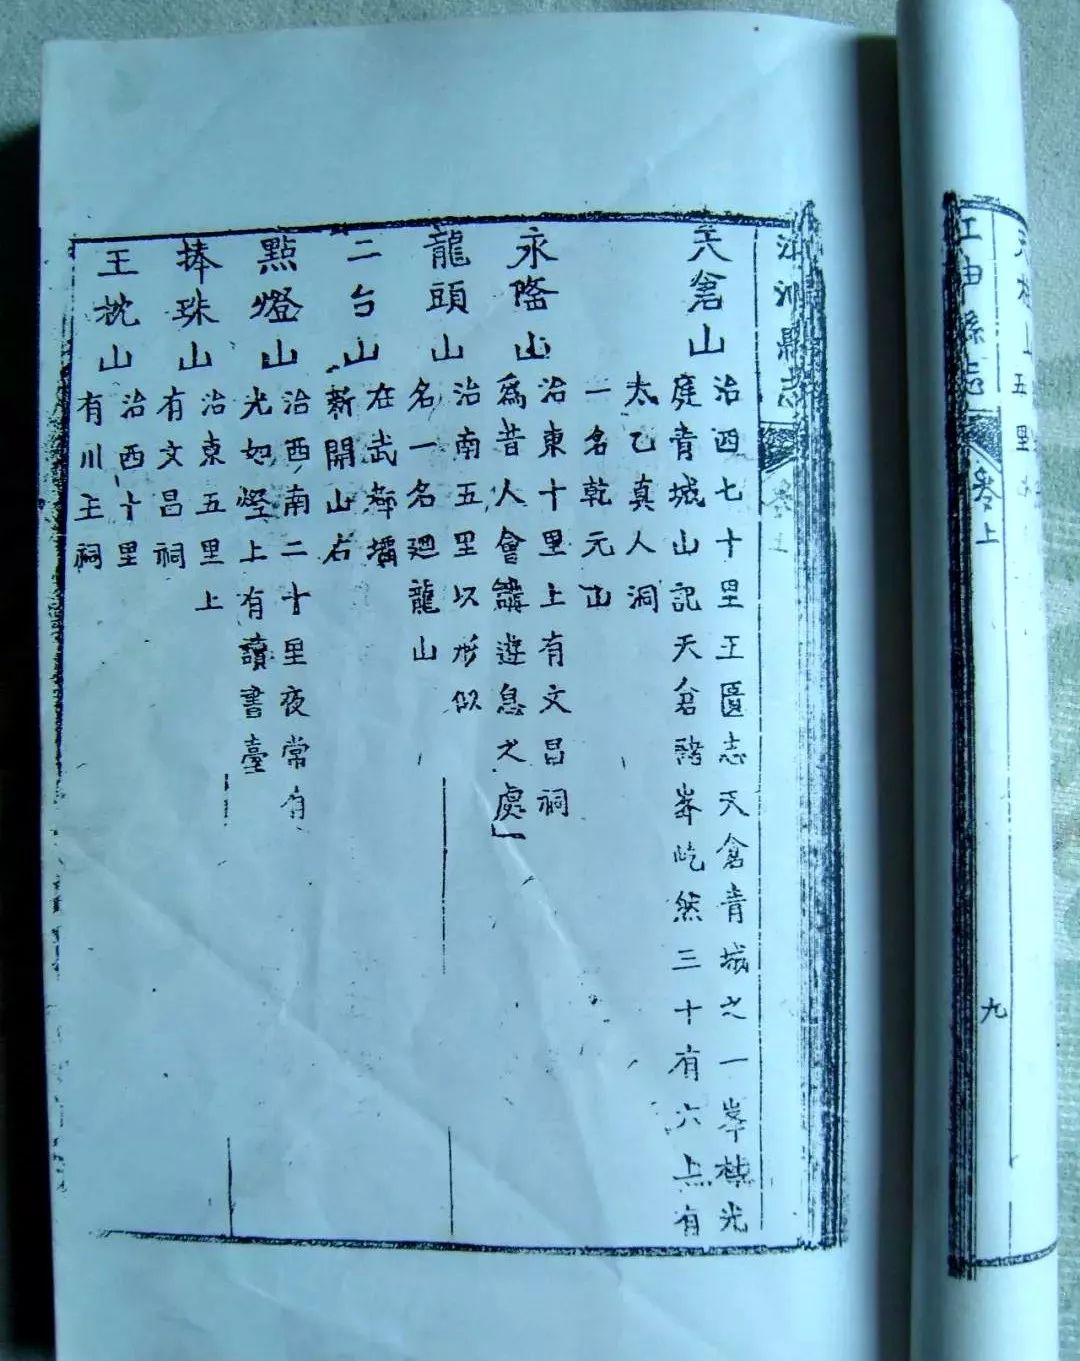 天倉山
治西七十里王匱志天倉青城之一峯杜光
庭青城山記天倉諸峯屹然三十有六上有
太乙真人洞
一名乾元山
永隆山
治東十里上有文昌祠
為昔人會講遊息之處
龍頭山
治南五里以形似
名一名迴龍山
二台山
在武擔壩
新開山右
點燈山
治西南二十里夜常有
光如燈上有讀書臺
捧珠山
治東五里上
有文昌祠
王枕山
治西十里
有川主祠
縣志
卷上
九